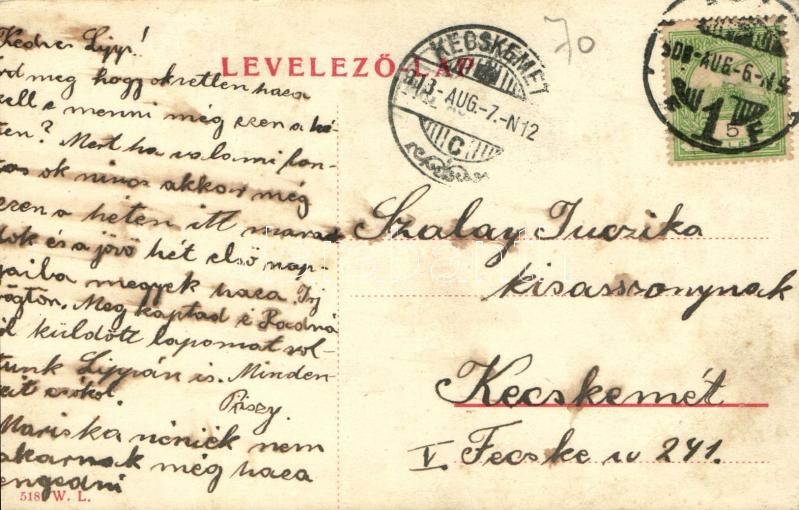 Kedves Lipp!
Írd meg hogy okvetlen haza
kell e menni még ezen a hé-
ten? Mert ha valami fon-
tos ok nincs akkor még
ezen a héten itt marad
dok és a jövő hét első nap-
jaiba megyek haza. Írj
rögtön. Meg kaptad e Radná
ról küldött lapomat vol-
tunk Lippán is. Minden-
kit csókol.
Pirszy.
Mariska néniék nem
akarnak még haza
engedni
518. W. L.
LEVELEZŐ-LAP
70
KECSKEMÉT
913-AUG.-7.-N12
C
908-AUG-6-N5
5
Szalay Juczika
kisasszonynak
Kecskemét
V. Fecske u 241.